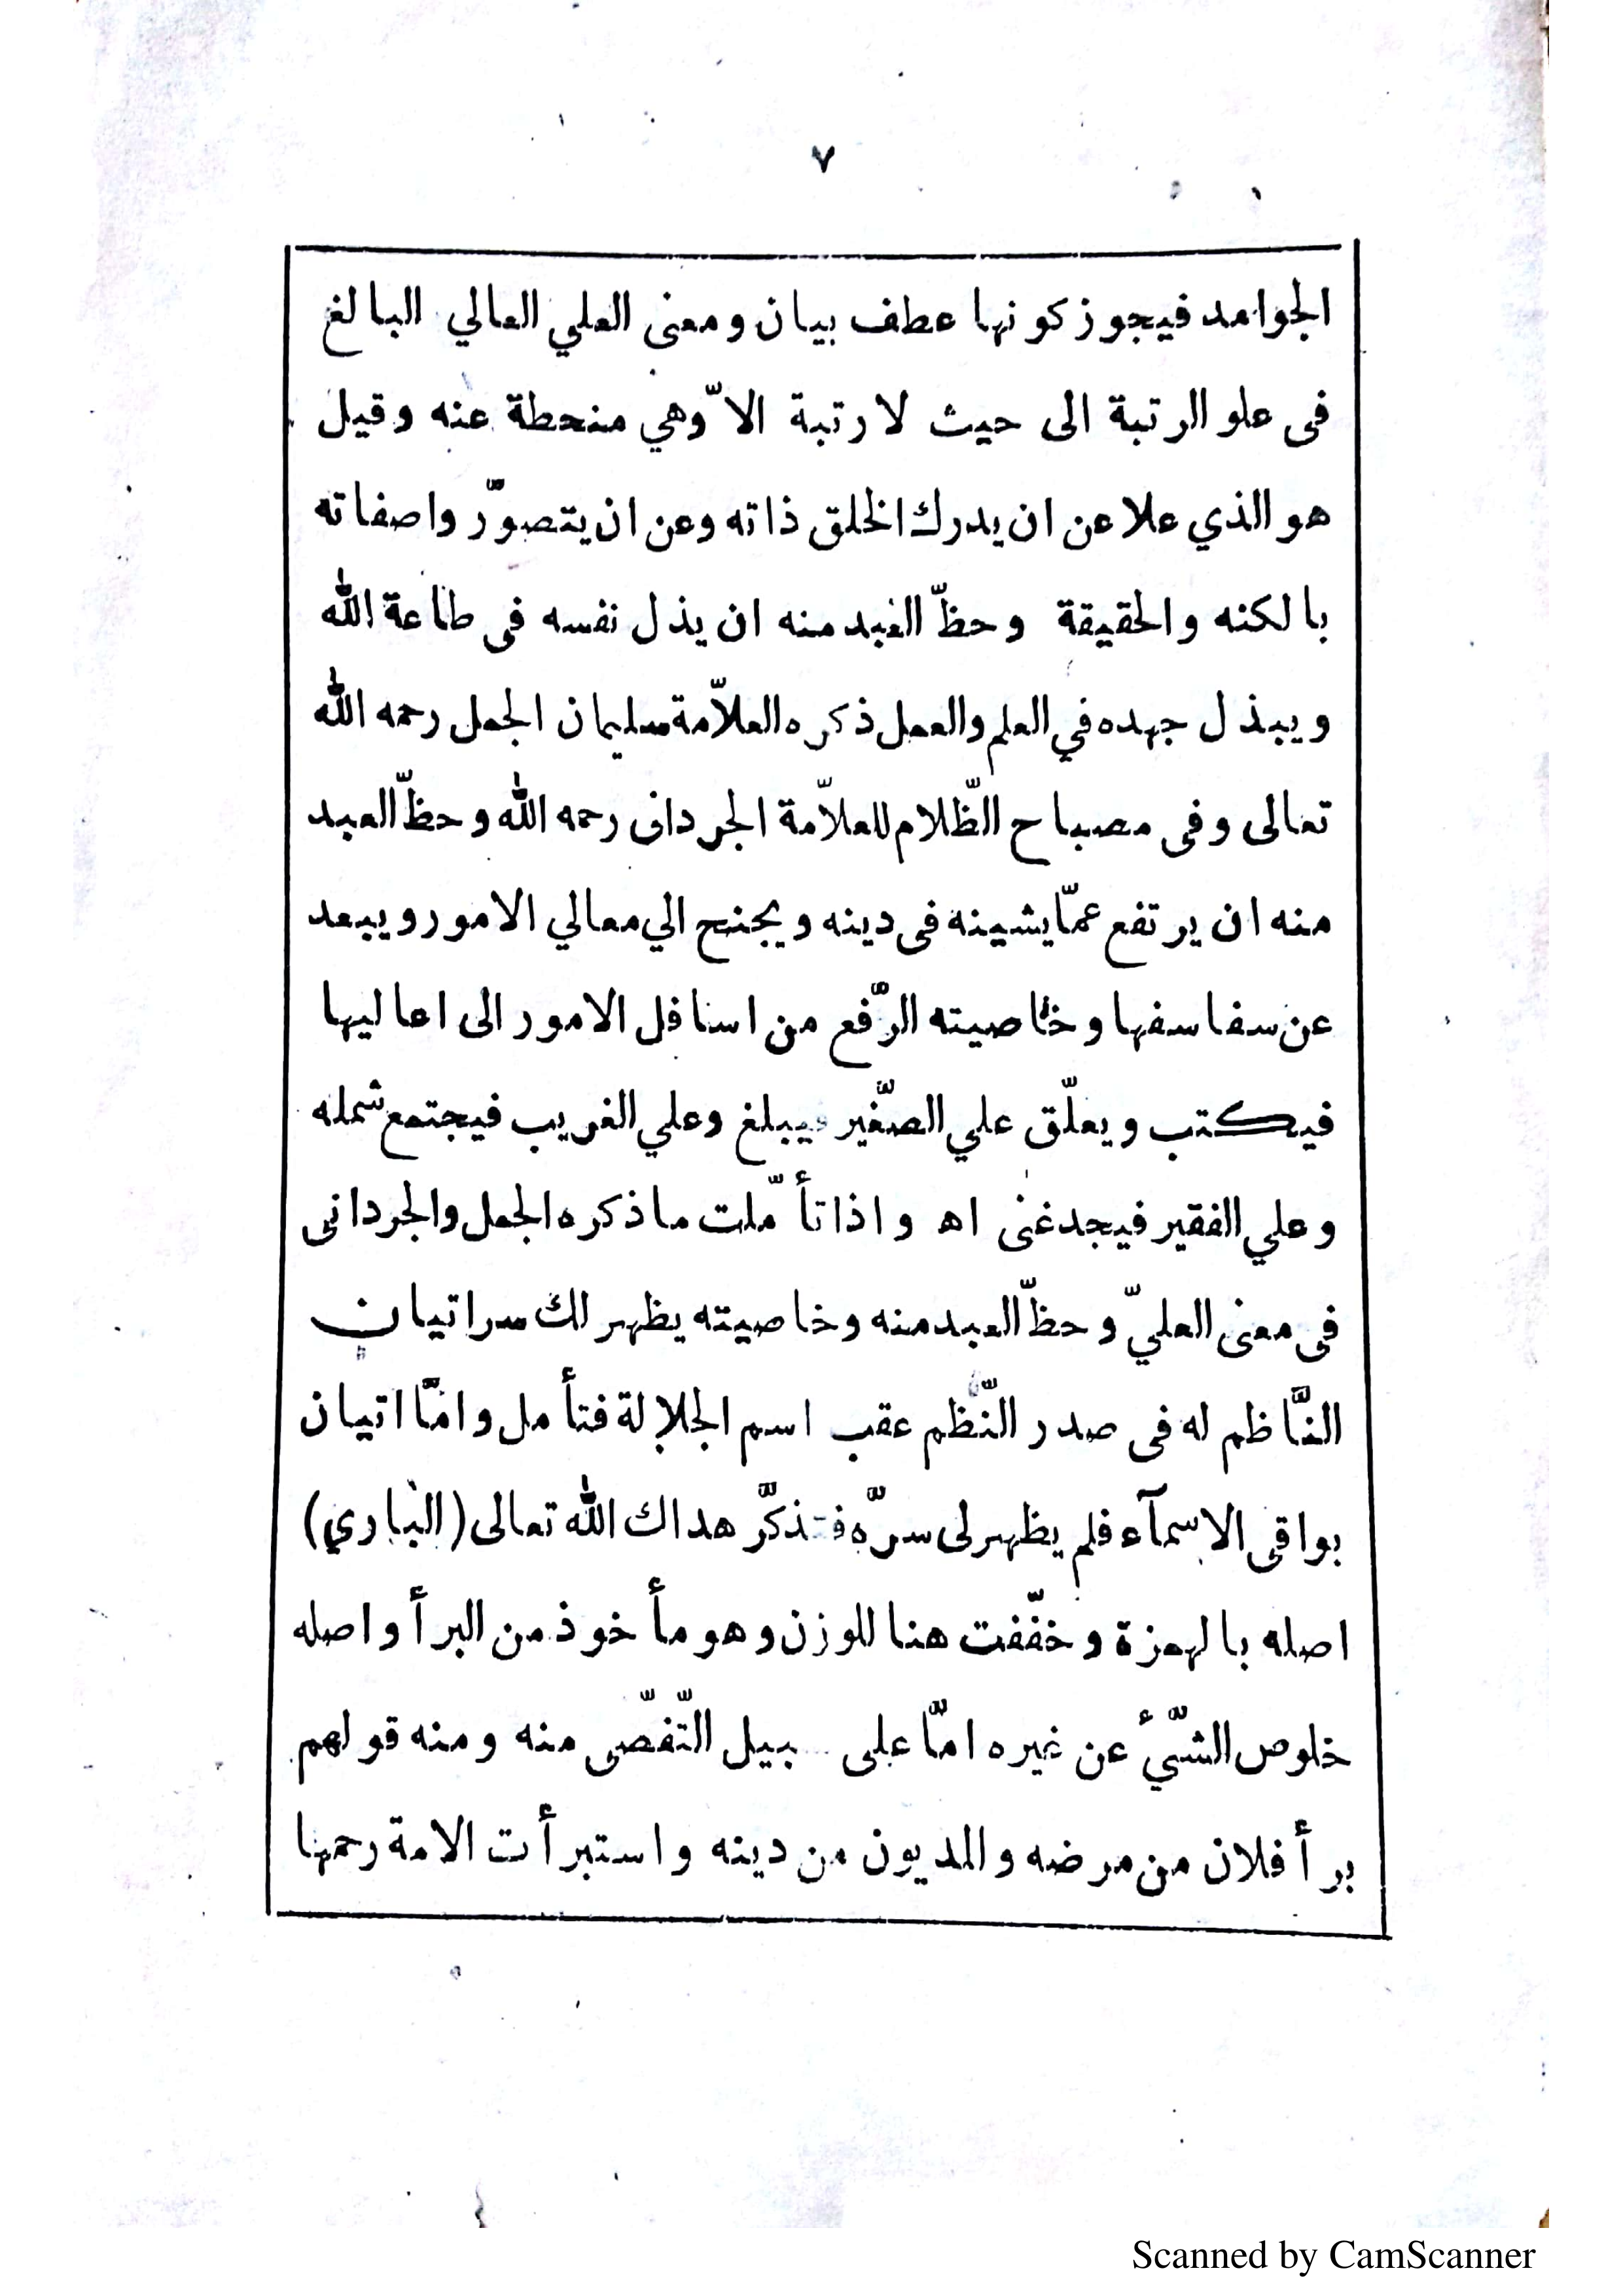 ٧
الجوامد فيجوز كونها عطف بيان ومعنى العلي العالي البالغ
فى علو الرتبة الى حيث لا رتبة الاّ وهي منحطة عنه وقيل
هو الذي علا عن ان يدرك الخلق ذاته وعن ان يتصوّر واصفاته
بالكنه والحقيقة وحظّ العبد منه ان يذل نفسه فى طاعة الله
ويبذل جهده في العلم والعمل ذكره العلاّمة سليمان الجمل رحمه الله
تعالى وفى مصباح الظّلام للعلاّمة الجردانى رحمه الله وحظّ العبد
منه ان يرتفع عمّا يشينه فى دينه ويجنح الي معالي الامور ويبعد
عن سفاسفها وخاصيته الرّفع من اسافل الامور الى اعاليها
فيكتب ويعلّق علي الصّغير فيبلغ وعلي الغريب فيجتمع شمله
وعلي الفقير فيجد غنى اه واذا تأمّلت ما ذكره الجمل والجردانى
فى معنى العليّ وحظّ العبد منه وخاصيته يظهر لك سر اتيان
النّاظم له فى صدر النّظم عقب اسم الجلالة فتأمل وامّا اتيان
بواقى الاسمآء فلم يظهر لى سرّه فتذكّر هداك الله تعالى (البارى)
اصله بالهمزة وخفّفت هنا للوزن وهو مأخوذ من البرأ واصله
خلوص الشّئ عن غيره امّا على بيل التّفصّى منه ومنه قولهم
برأ فلان من مرضه والمديون من دينه واستبرأت الامة رحمها
Scanned by CamScanner